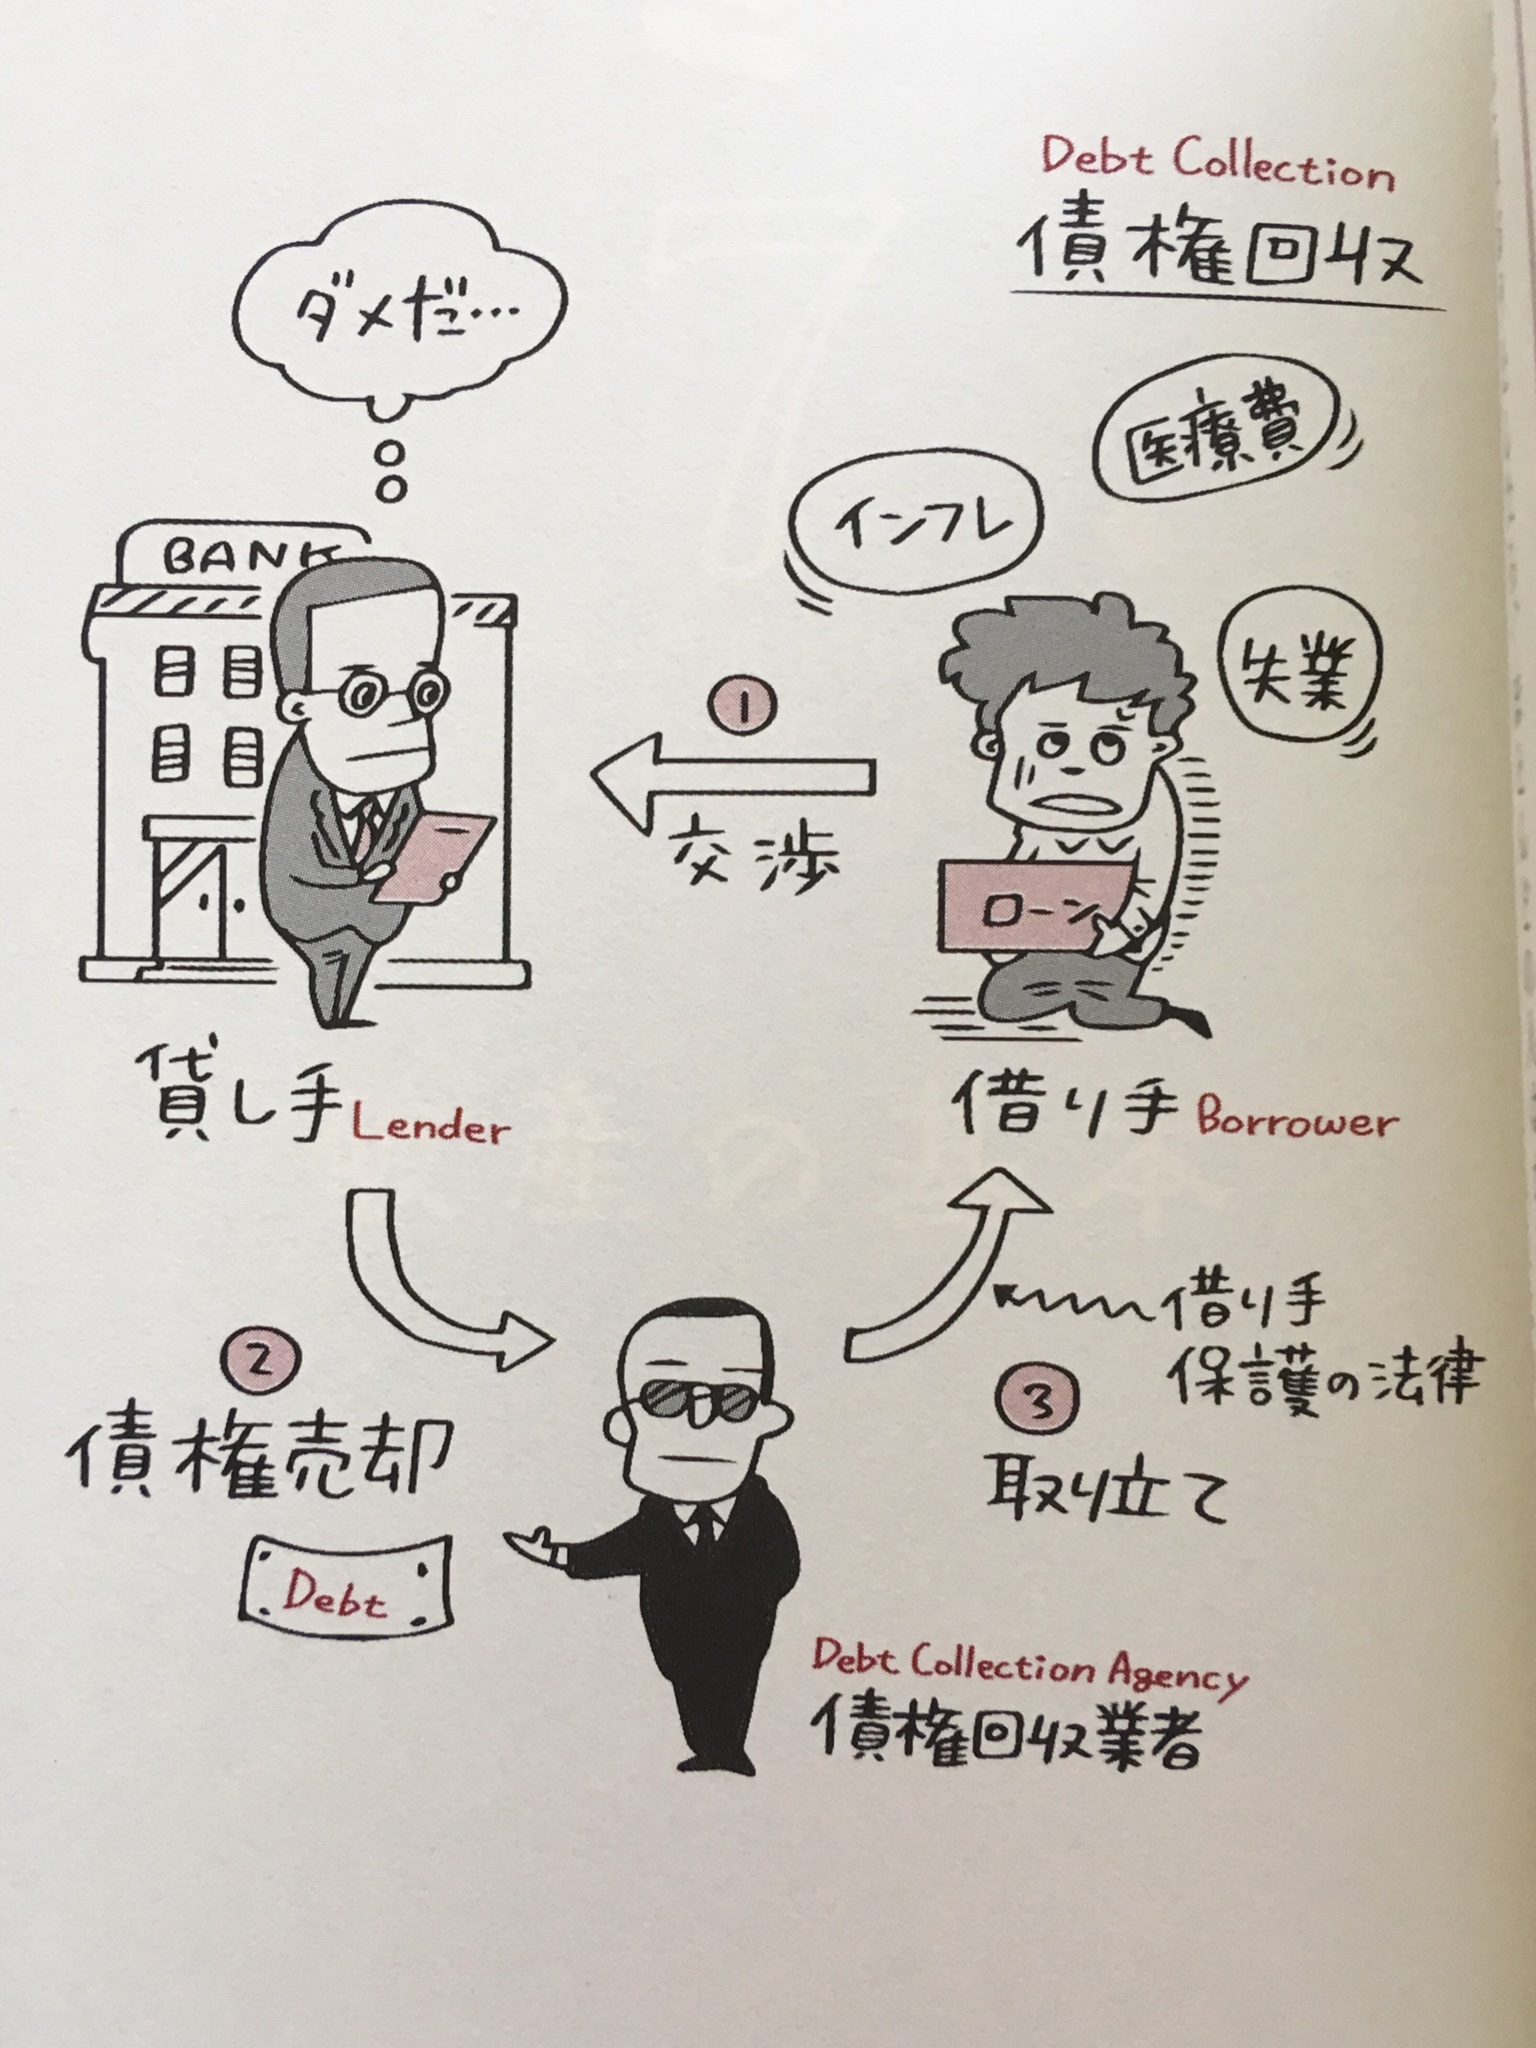 Debt Collection
債権回収
ダメだ…
医療費
インフレ
失業
BANK
1
交渉
ローン
貸し手 Lender
借り手 Borrower
借り手
保護の法律
2
債権売却
3
取り立て
Debt
Debt Collection Agency
債権回収業者